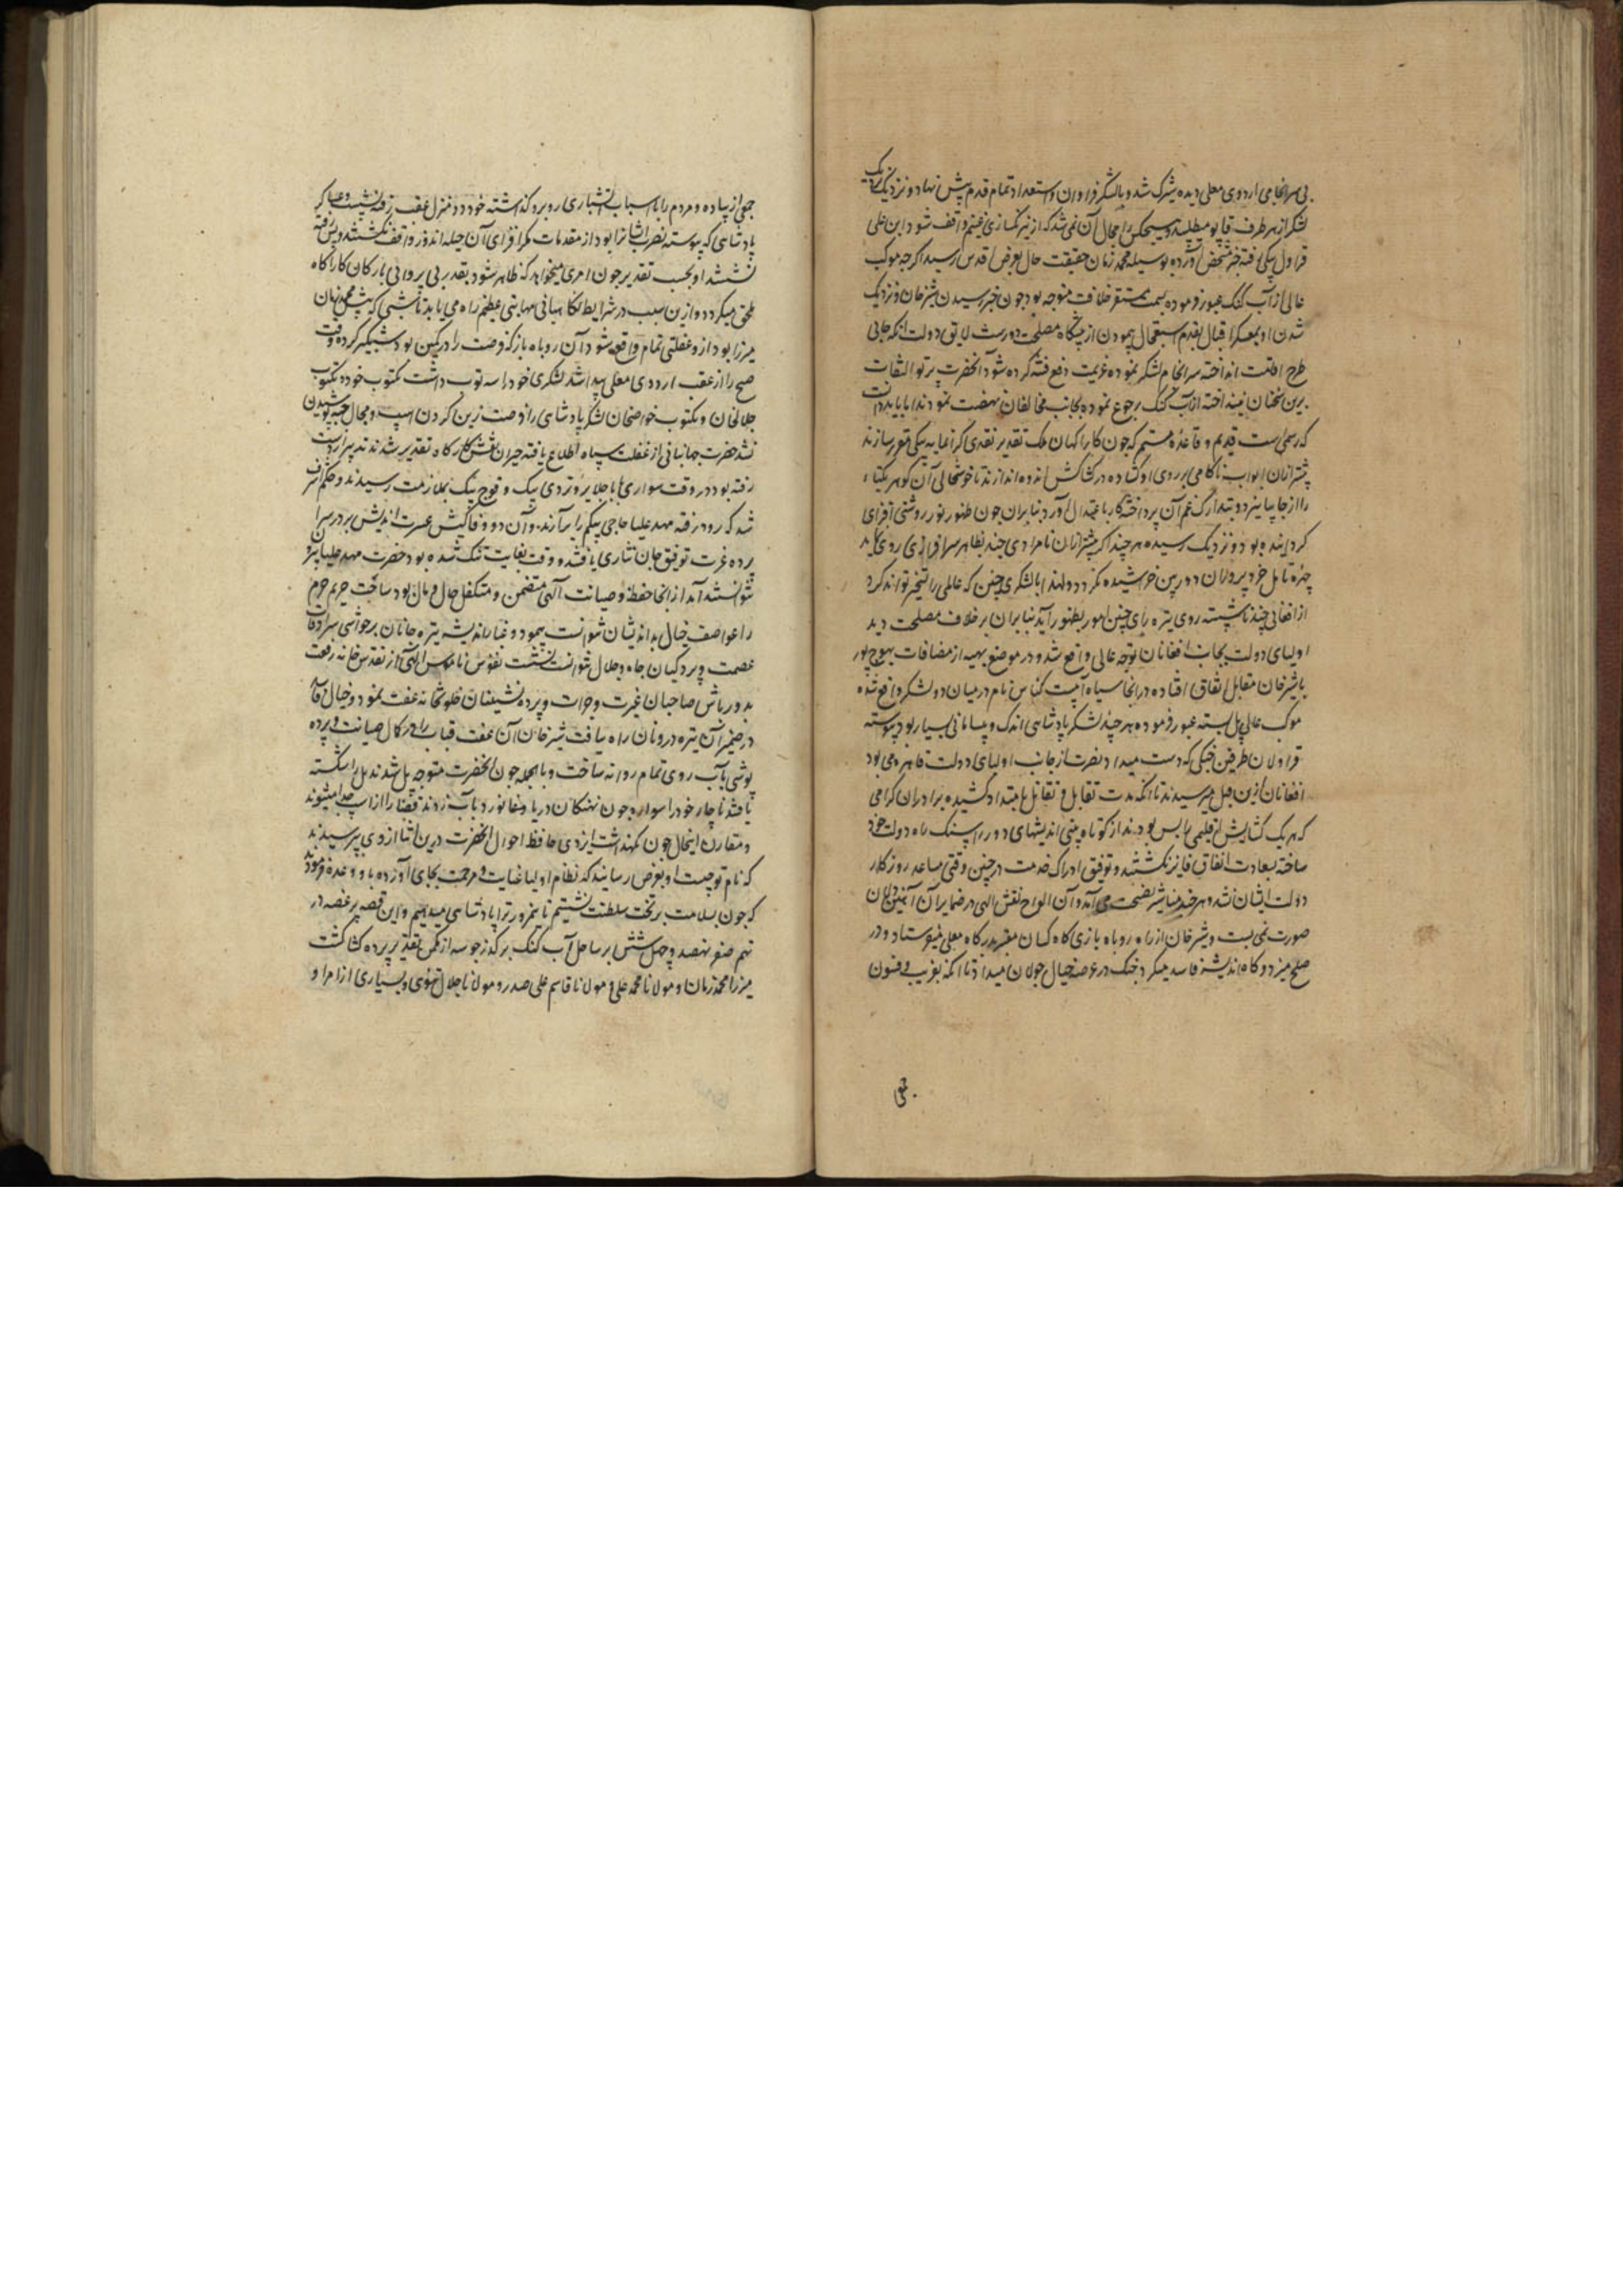 بی سرانجامی اردوی معلی دیده شیرک شد و بالشکر فراوان و استعداد تمام قدم پیش نهاد و نزدیک
لشکر از هر طرف قابو میطلبید و هیچکس را مجال آن نمی شد که از نیرنگسازی غنیم واقف شود ابن علی
قراول بیگی رفته خبر مشخص آورده بوسیله محمد زمان حقیقت حال بعرض اقدس رسید اگرچه موکب
عالی از آب گنگ عبور فرموده بسمت مستقر خلافت متوجه بود چون خبر رسیدن شیرخان و نزدیک
شدن او بمعسکر اقبال بقدم استعجال پیمودن از پیشگاه مصلحت دور است لایق دولت آنکه جائی
طرح اقامت انداخته سرانجام لشکر نموده عزیمت دفع فتنه کرده شود آنحضرت پرتو التفات
برین سخنان نینداخته از آب گنگ رجوع نموده بجانب مخالفان نهضت نمودند اما باید دانست
که رسمی است قدیم و قاعده مستمر که چون کارآگهان ملک تقدیر نقدی گرانمایه بیکی مقرر سازند
پیشتر ازان ابواب ناکامی بر روی او گشاده در کشاکش اندوه اندازند تا خوشحالی آن گوهر یکتاء
را از جا بیارند و بتدارک غم آن پرداخته کار باعتدال آورد بنابران چون ظهور نور روشنی افزای
گردانیده بود و نزدیک رسیده هر چند اگر پیشتر ازان نامرادی چند بظاهر سرافرازی روی نماید
چهره تامل خرد پروران دوربین خراشیده نگردد و لهذا با لشکری چنین که عالمی را تسخیر تواند کرد
از افغانی چند ناشسته روی تیره رای چنین امور بظهور آید بنابران برخلاف مصلحت دید
اولیای دولت بجانب افغانان توجه عالی واقع شد و در موضع بهیه از مضافات بهوج پور
با شیرخان مقابل اتفاق افتاده در آنجا سیاه آبیست کنباس نام در میان دو لشکر واقع شده
موکب عالی پل بسته عبور فرموده هر چند لشکر پادشاهی اندک و بیسامانی بسیار بود پیوسته
قراولان طرفین جنگی که دست میداد نصرت از جانب اولیای دولت قاهره می بود
افغانان ازین قبل میرسیدند تا آنکه مدت تقابل و تقاتل بامتداد کشیده برادران گرامی
که هر یک گشایش اقلیمی را بس بودند از کوتاه بینی اندیشهای دور را سنگ راه دولت خود
ساخته بسعادت اتفاق فایز نگشتند و توفیق ادراک خدمت در چنین وقتی مساعد روزگار
دولت ایشان نشد و هر چند مناشیر نصیحت می آمد و آن الواح نقش الهی در ضمایر آن آهنین دلان
صورت نمی بست و شیرخان از راه روباه بازی گاه کسان معتبر بدرگاه معلی میفرستاد و در
صلح میزد و گاه اندیشه فاسد میکرد جنگ در عرصه خیال جولان میداد تا آنکه بفریب و فسون
جمعی
جمعی از پیاده و مردم را با اسباب آتشباری روبرو گذاشته خود دو منزل عقب رفته نشست و عساکر
پادشاهی که پیوسته نصرت ایشانرا بود از مقدمات مکرافزای آن حیله اندوز واقف نگشتند و پس رفته
نشستند او بحسب تقدیر چون امری میخواهد که ظاهر شود بقدر بی پروائی بارکان کارآگاه
ملحق میگردد و ازین سبب در شرایط نگاهبانی مهابتی عظیم راه می یابد تا شبی که پیش محمد زمان
میرزا بود از و غفلتی تمام واقع شود آن روباه باز که فرصت را در کمین بود شبگیر کرده وقت
صبح را از عقب اردوی معلی پیدا شد لشکری خود را سه توپ داشت یکتوپ خود و یکتوپ
جلالخان و یکتوپ خواصخان لشکر پادشاهی را فرصت زین کردن اسپ و مجال جیبه پوشیدن
نشد حضرت جهانبانی از غفلت سپاه اطلاع یافته حیران نقش کارگاه تقدیر شدند تدبیر از دست
رفته بود در وقت سواری بابا جلایر و تردی بیک و قوج بیک بملازمت رسیدند و حکم اشرف
شد که زود رفته مهد علیا حاجی بیگم را برآرند و آن دو وفاکیش غیرت اندیش بر در سرا
پرده عزت توفیق جان نثاری یافتند و وقت بغایت تنگ شده بود حضرت مهد علیا بیرون
نتوانستند آمد از آنجا حفظ و صیانت الهی متضمن و متکفل حال و مال بود ساحت حریم حرم
را عواصف خیال بداندیشان نتوانست پیمود و غبار اندیشه تیره جانان بر حواشی سرادقات
عصمت و پردگیان جاه و جلال نتوانست نشست نفوس ناموس الهی از تقدس خانه رفعت
بدورباش صاحبان غیرت و جرات و پرده نشینان خلوتخانه عفت نمود و خیال فاسد
در ضمیر آن تیره درونان راه نیافت شیرخان آن عفت قباب را در کمال صیانت و پرده
پوشی بآب روی تمام روانه ساخت و بالجمله چون آنحضرت متوجه پل شدند پل را شکسته
یافتند ناچار خود را سواره چون نهنگان دریا و شناور در آب زدند قضا را از اسپ جدا میشوند
و مقارن اینحال چون نگهداشت ایزدی حافظ احوال آنحضرت درین اثنا از وی پرسیدند
که نام تو چیست او بعرض رسانید که نظام اولیا عنایت و مرحمت بجای آورده با و وعده فرمودند
که چون بسلامت بر تخت سلطنت نشستیم تا نیمروز ترا پادشاهی میدهیم و این قصه پرغصه در
نهم صفر نهصد و چهل شش بر ساحل آب گنگ بر گذر جوسه از مکمن تقدیر پرده گشا گشت
میرزا محمد زمان و مولانا محمد علی و مولانا قاسم علی صدر و مولانا جلال تتوی و بسیاری از امرا و